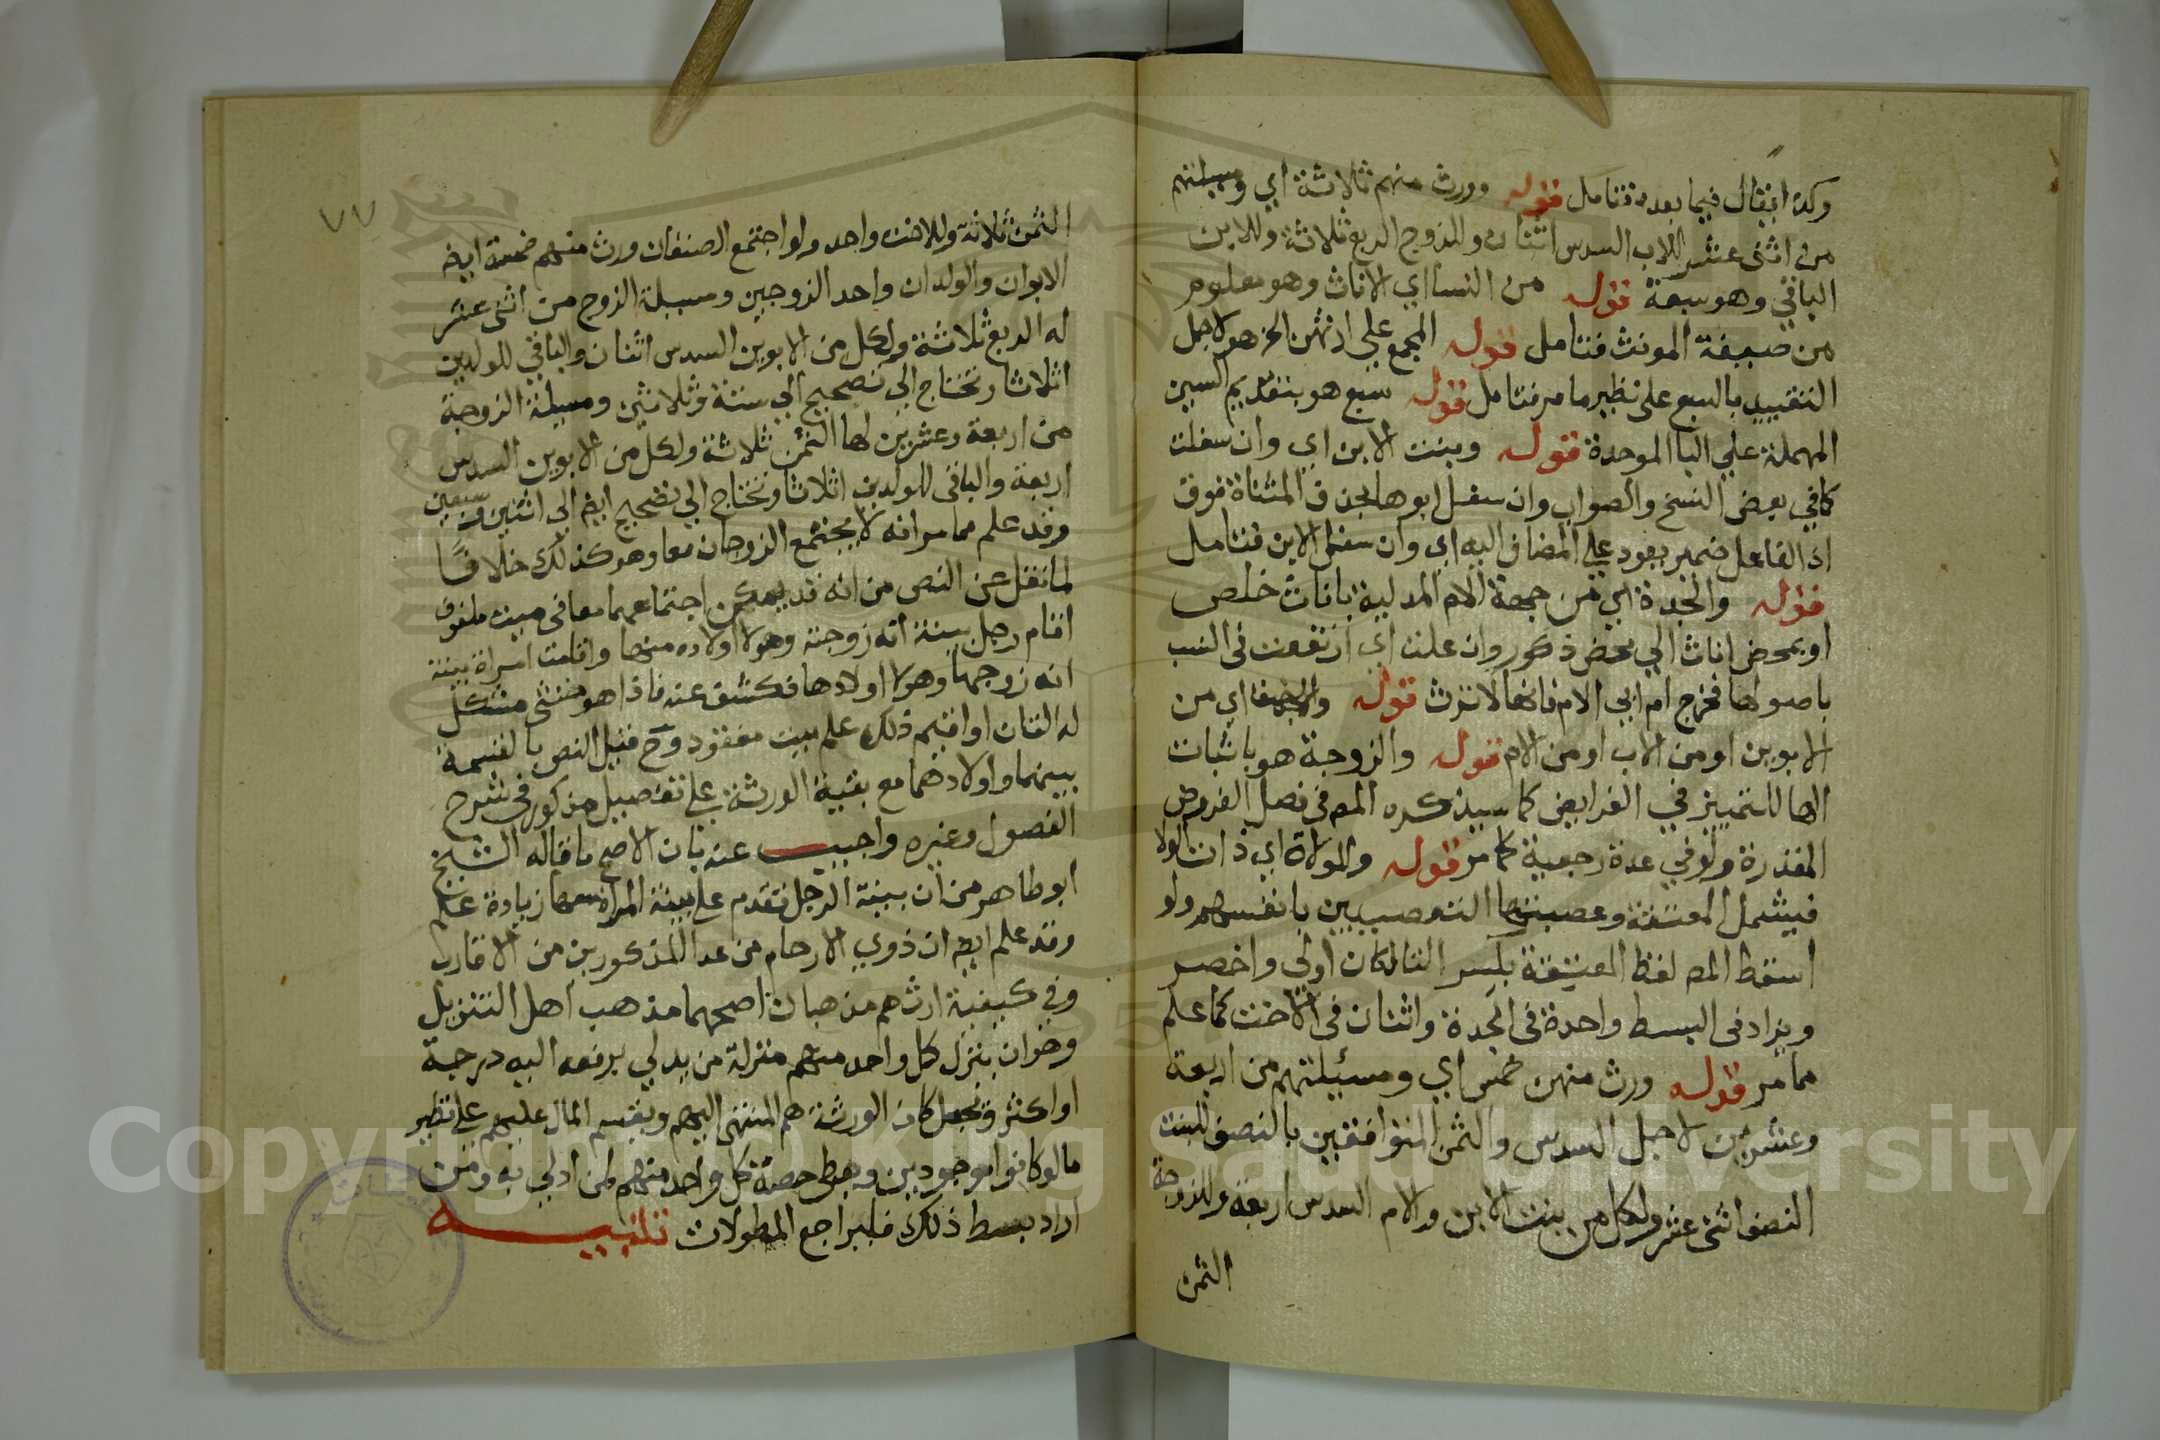 وكذا يقال فيما بعده فتامل قوله وورث منهم ثلاثة اي ومسيلتهم
من اثنى عشر للاب السدس اثنان وللزوج الربع ثلاثة وللابن
الباقي وهو سبعة قوله من النسا اي الاناث وهو معلوم
من صيغة المونث فتامل قوله المجمع علي ارثهن الخ هو لاجل
التقييد بالسبع على نظير ما مر فتامل قوله سبع هو بتقديم السين
المهملة علي البا الموحدة قوله وبنت الابن اي وان سفلت
كما في بعض النسخ والصواب وان سفل ابوها بحذف المثناة فوق
اذ الفاعل ضمير يعود علي المضاف اليه اي وان سفل الابن فتامل
قوله والجدة اي من جهة الام المدلية باناث خلص
او بمحض اناث الي محض ذكور وان علت اي ارتفعت في النسب
باصولها فخرج ام ابي الام فانها لا ترث قوله والاخت اي من
الابوين او من الاب او من الام قوله والزوجة هو باثبات
الها للتمييز في الفرايض كما سيذكره المص في فصل الفروض
المقدرة ولو في عدة رجعية كما مر قوله والمولاة اي ذات الولا
فيشمل المعتقة وعصبتها المتعصبين بانفسهم ولو
اسقط المص لفظ المعتقة بكسر التا لكان اولي واخصر
ويزاد في البسط واحدة في الجدة واثنتان في الاخت كما علم
مما مر قوله ورث منهن خمس اي ومسئيلتهم من اربعة
وعشرين لاجل السدس والثمن المتوافقين بالنصف للبنت
النصف اثنى عشر ولكل من بنت الابن والام السدس اربعة وللزوجة
الثمن
٧٧
الثمن ثلاثة وللاخت واحد ولو اجتمع الصنفان ورث منهم خمسة ايض
الابوان والولدان واحد الزوجين ومسيلة الزوج من اثنى عشر
له الربع ثلاثة ولكل من الابوين السدس اثنان والباقي للولدين
اثلاثا وتحتاج الي تصحيح الي ستة وثلاثين ومسيلة الزوجة
من اربعة وعشرين لها الثمن ثلاثة ولكل من الابوين السدس
اربعة والباقي للولدين اثلاثا وتحتاج الي تصحيح ايض الي اثنين وسبعين
وقد علم مما مر انه لا يجتمع الزوجان معا وهو كذلك خلافًا
لما نقل عن النص من انه قد يمكن اجتماعهما معا في ميت ملفوف
اقام رجل بينة انه زوجته وهولا اولاده منها واقامت امراة بينة
انه زوجها وهولا اولادها فكشف عنه فاذا هو خنثى مشكل
له التان او اقيم ذلك علم ميت مفقود وح فقيل النص بالقسمة
بينهما واولادهما مع بقية الورثة علي تفصيل مذكور في شرح
الفصول وغيره واجيب عنه بان الاصح ما قاله الشيخ
ابو طاهر من ان بينة الرجل تقدم علي بينة المراة معها زيادة علم
وقد علم ايض ان ذوي الارحام من عدا المذكورين من الاقارب
وفي كيفية ارثهم مذهبان اصحهما مذهب اهل التنزيل
وهو ان ينزل كل واحد منهم منزلة من يدلي برفعه اليه درجة
او اكثر وتجعل كان الورثة هم المنتهى اليهم ويقسم المال عليهم علي نظير
ما لو كانوا موجودين ويعطى حصة كل واحد منهم لمن ادلي به ومن
اراد بسط ذلك فليراجع المطولات تنبيه
Copyright © King Saud University